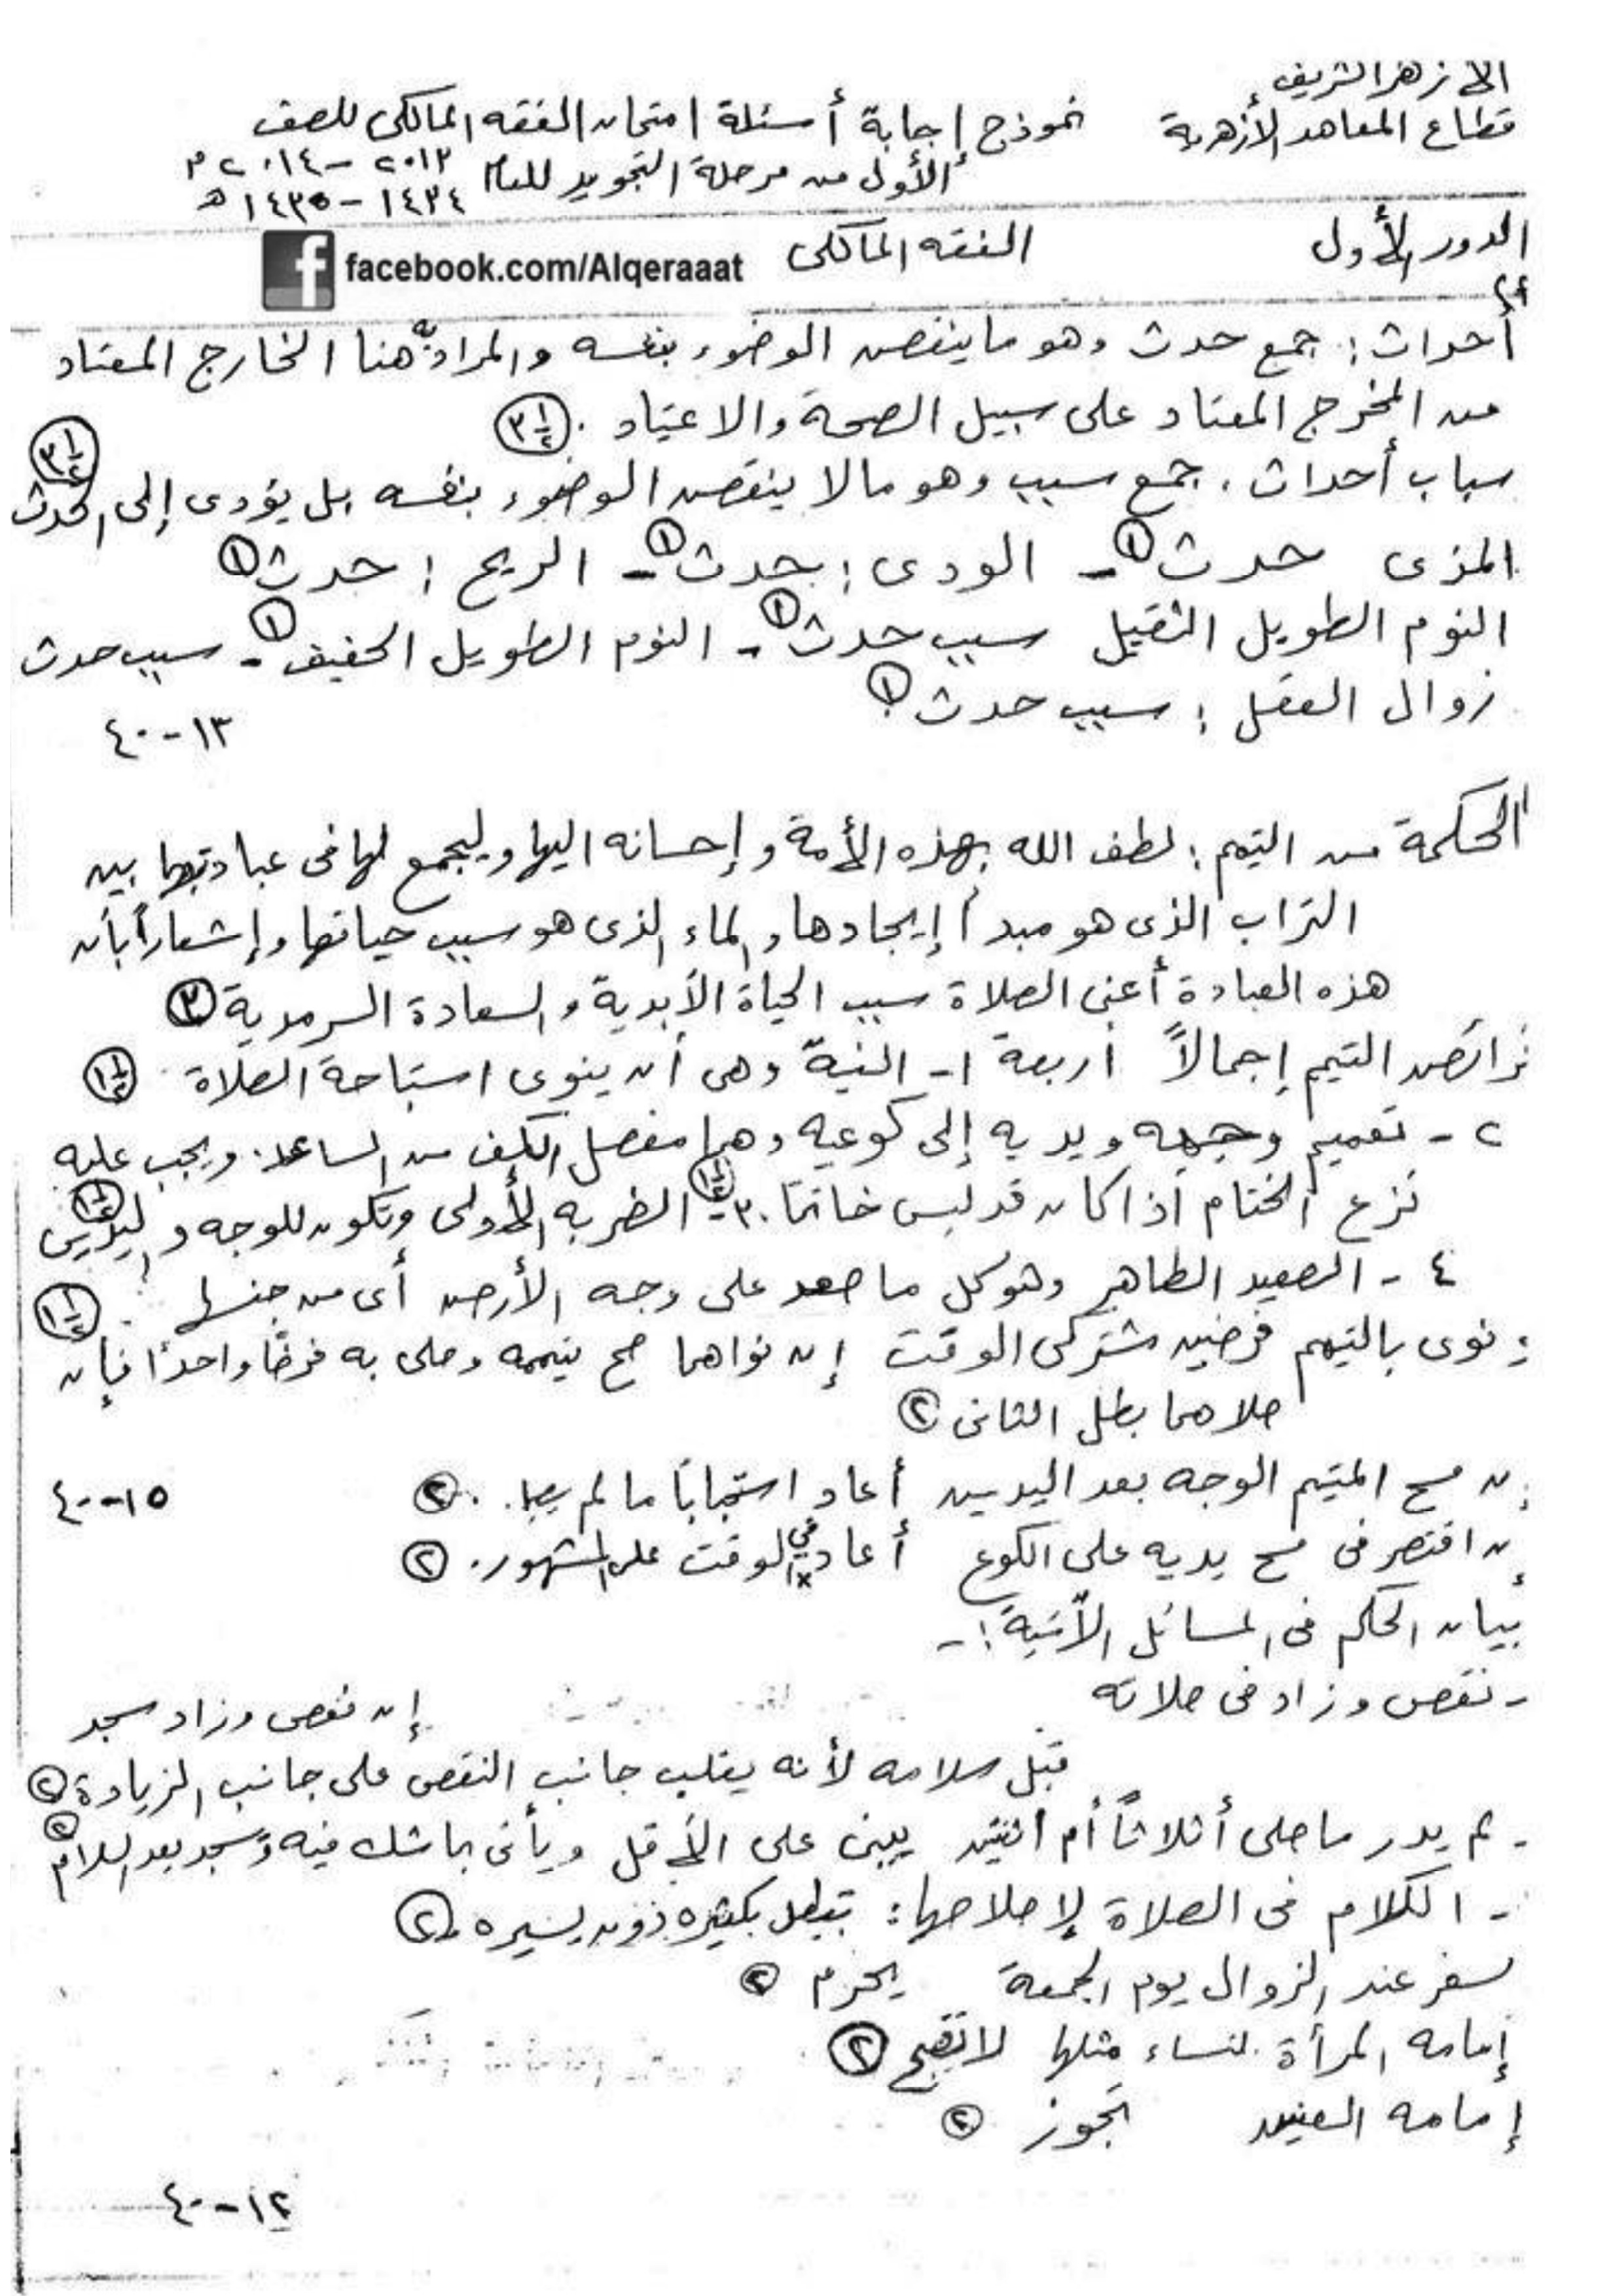 الأزهر الشريف
قطاع المعاهد الأزهرية نموذج إجابة أسئلة امتحان الفقه المالكى للصف
الأول من مرحلة التجويد للعام ٢٠١٣ - ٢٠١٤ م
١٤٣٤ - ١٤٣٥ هـ
الدور الأول الفقه المالكى facebook.com/Alqeraaat
أحداث : جمع حدث وهو ما ينقض الوضوء بنفسه والمراد به هنا الخارج المعتاد
من المخرج المعتاد على سبيل الصحة والاعتياد . ٣ ١/٢
سباب أحداث . جمع سبب وهو مالا ينقض الوضوء بنفسه بل يؤدى إلى الحدث ٣ ١/٢
المذى حدث ١ - الودى : حدث ١ - الريح : حدث ١
النوم الطويل الثقيل سبب حدث ١ - النوم الطويل الخفيف ١ - سبب حدث
زوال العقل : سبب حدث ١
١٣ - ٤٠
الحكمة من التيمم : لطف الله بهذه الأمة وإحسانه اليها وليجمع لها فى عبادتها بين
التراب الذى هو مبدأ إيجادها والماء الذى هو سبب حياتها وإشعاراً بأن
هذه العبادة أعنى الصلاة سبب الحياة الأبدية والسعادة السرمدية ٣
فرائض التيمم إجمالاً أربعة ١- النية وهى أن ينوى استباحة الصلاة ١ ١/٢
٢ - تعميم وجهه ويديه إلى كوعيه وهما مفصل الكف من الساعد . ويجب عليه
نزع الختام اذا كان قد لبس خاتما . ١ ١/٢ ٣- الضربه الأولى وتكون للوجه واليدين ١ ١/٢
٤ - الصعيد الطاهر وهو كل ما صعد على وجه الأرض أى من جنسها . ١ ١/٢
نوى بالتيمم فرضين مشتركى الوقت إن نواهما صح تيممه وصلى به فرضًا واحدًا فإن
صلاهما بطل الثانى ٢
ن مسح المتيمم الوجه بعد اليدين أعاد استحبابًا ما لم . ٢ ١٥ - ٤٠
ن اقتصر فى مسح يديه على الكوع أعاد في الوقت على المشهور . ٢
بيان الحكم فى المسائل الآتية : -
- نقص وزاد فى صلاته إن نقص وزاد سجد
قبل سلامه لأنه يغلب جانب النقص على جانب الزيادة ٢
- لم يدر ما صلى أثلاثاً أم اثنتين يبنى على الأقل ويأتى بما شك فيه وسجد بعد السلام ٢
- الكلام فى الصلاة لإصلاحها : تبطل بكثيره دون يسيره . ٢
لسفر عند الزوال يوم الجمعة يحرم ٢
إمامه المرأة لنساء مثلها لا تصح ٢
إمامه العنين تجوز ٢
١٢ - ٤٠